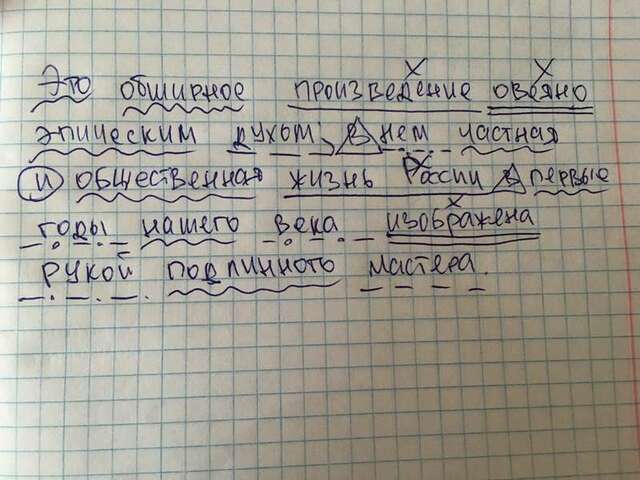 Это обширное произведение овеяно
эпическим духом, в нем частная
и общественная жизнь России в первые
годы нашего века изображена
рукой подлинного мастера.